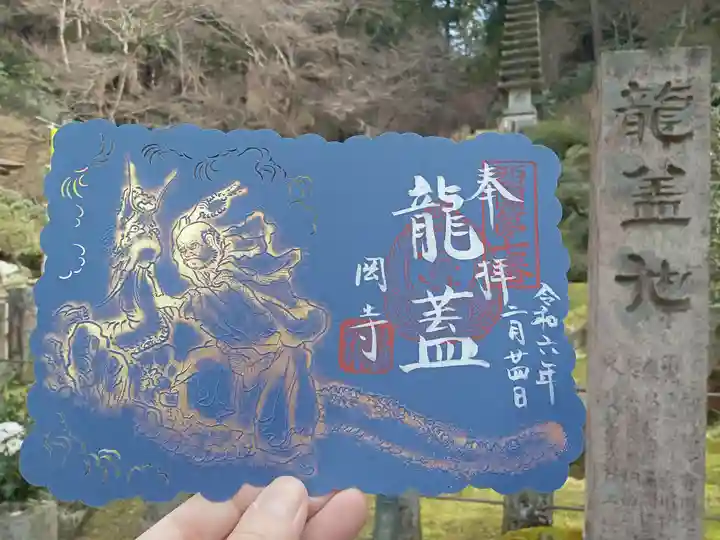 奉拝
龍蓋
岡寺
令和六年
二月廿四日
龍蓋池